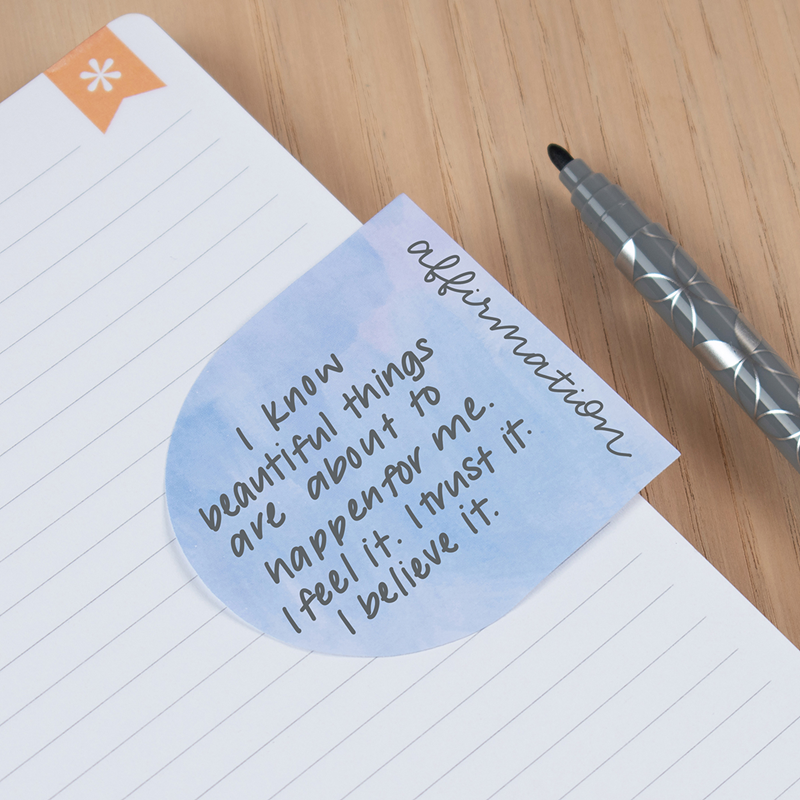 affirmation
I know
beautiful things
are about to
happen for me.
I feel it. I trust it.
I believe it.